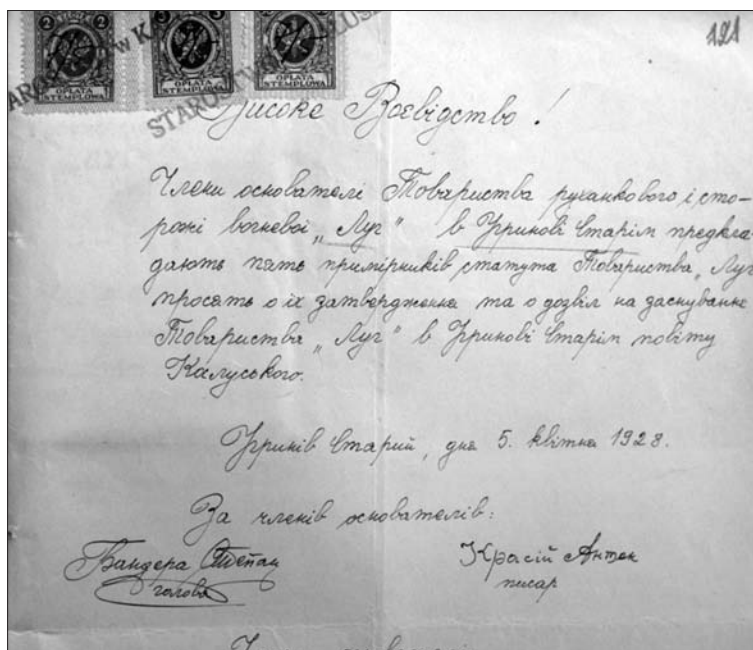 2 2
OPŁATA
STEMPLOWA
OPŁATA
STEMPLOWA
OPŁATA
STEMPLOWA
121
Високе Воєвідство!
Члени основателі Товариства руханкового і сто-
рожі вогневої „Луг“ в Угринові Старім предкла-
дають пять примірників статута Товариства „Луг
просять о їх затвердження та о дозвіл на заснуванне
Товариства „Луг“ в Угринові Старім повіту
Калуського.
Угринів Старий, дня 5. квітня 1928.
За членів основателів:
Бандера Степан
голова
Красій Антон
писар